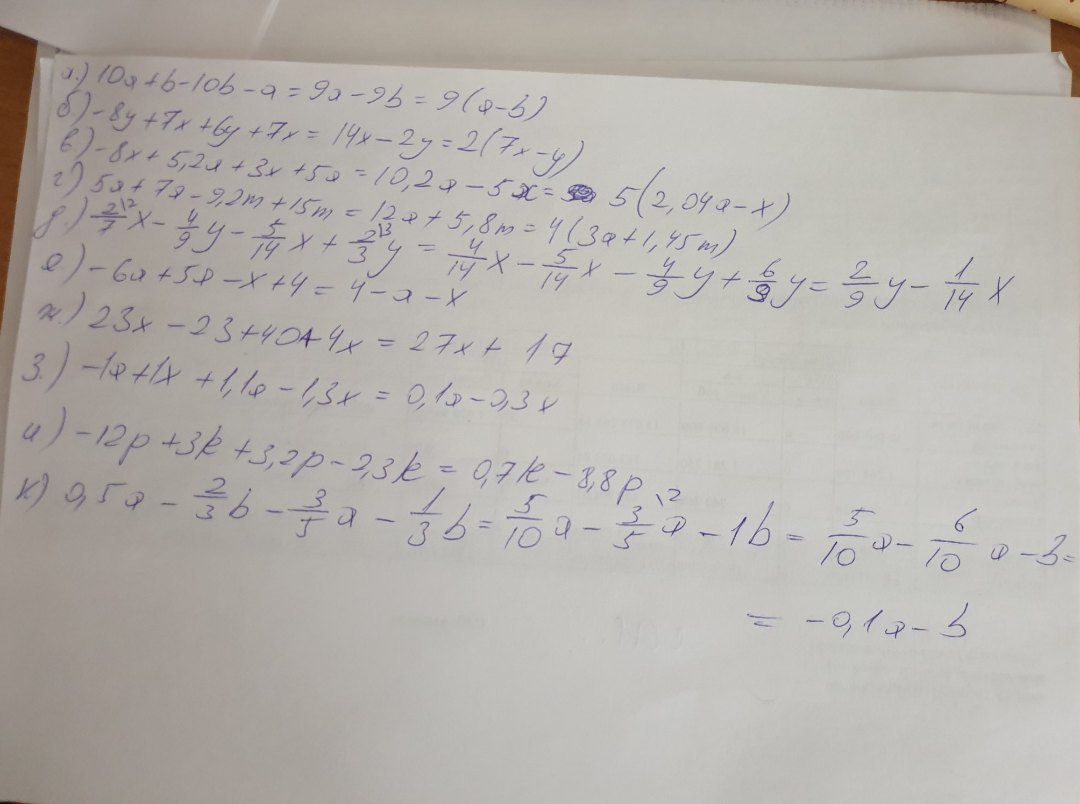 а.) 10a+b-10b-a = 9a-9b = 9(a-b)
б) -8y+7x+6y+7x = 14x-2y = 2(7x-y)
в) -8x+5,2a+3x+5a = 10,2a-5x = 5(2,04a-x)
г) 5a+7a-9,2m+15m = 12a+5,8m = 4(3a+1,45m)
д.) 2/7\2 x - 4/9 y - 5/14 x + 2/3\3 y = 4/14 x - 5/14 x - 4/9 y + 6/9 y = 2/9 y - 1/14 x
е) -6a+5a-x+4 = 4-a-x
ж.) 23x-23+40+4x = 27x+17
з.) -1a+1x+1,1a-1,3x = 0,1a-0,3x
и) -12p+3k+3,2p-2,3k = 0,7k-8,8p
к) 0,5a - 2/3 b - 3/5 a - 1/3 b = 5/10 a - 3/5\2 a - 1b = 5/10 a - 6/10 a - b =
= -0,1a-b